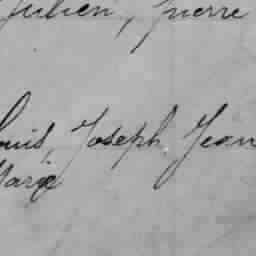 Julien, Pierre
Louis, Joseph, Jean
Marie